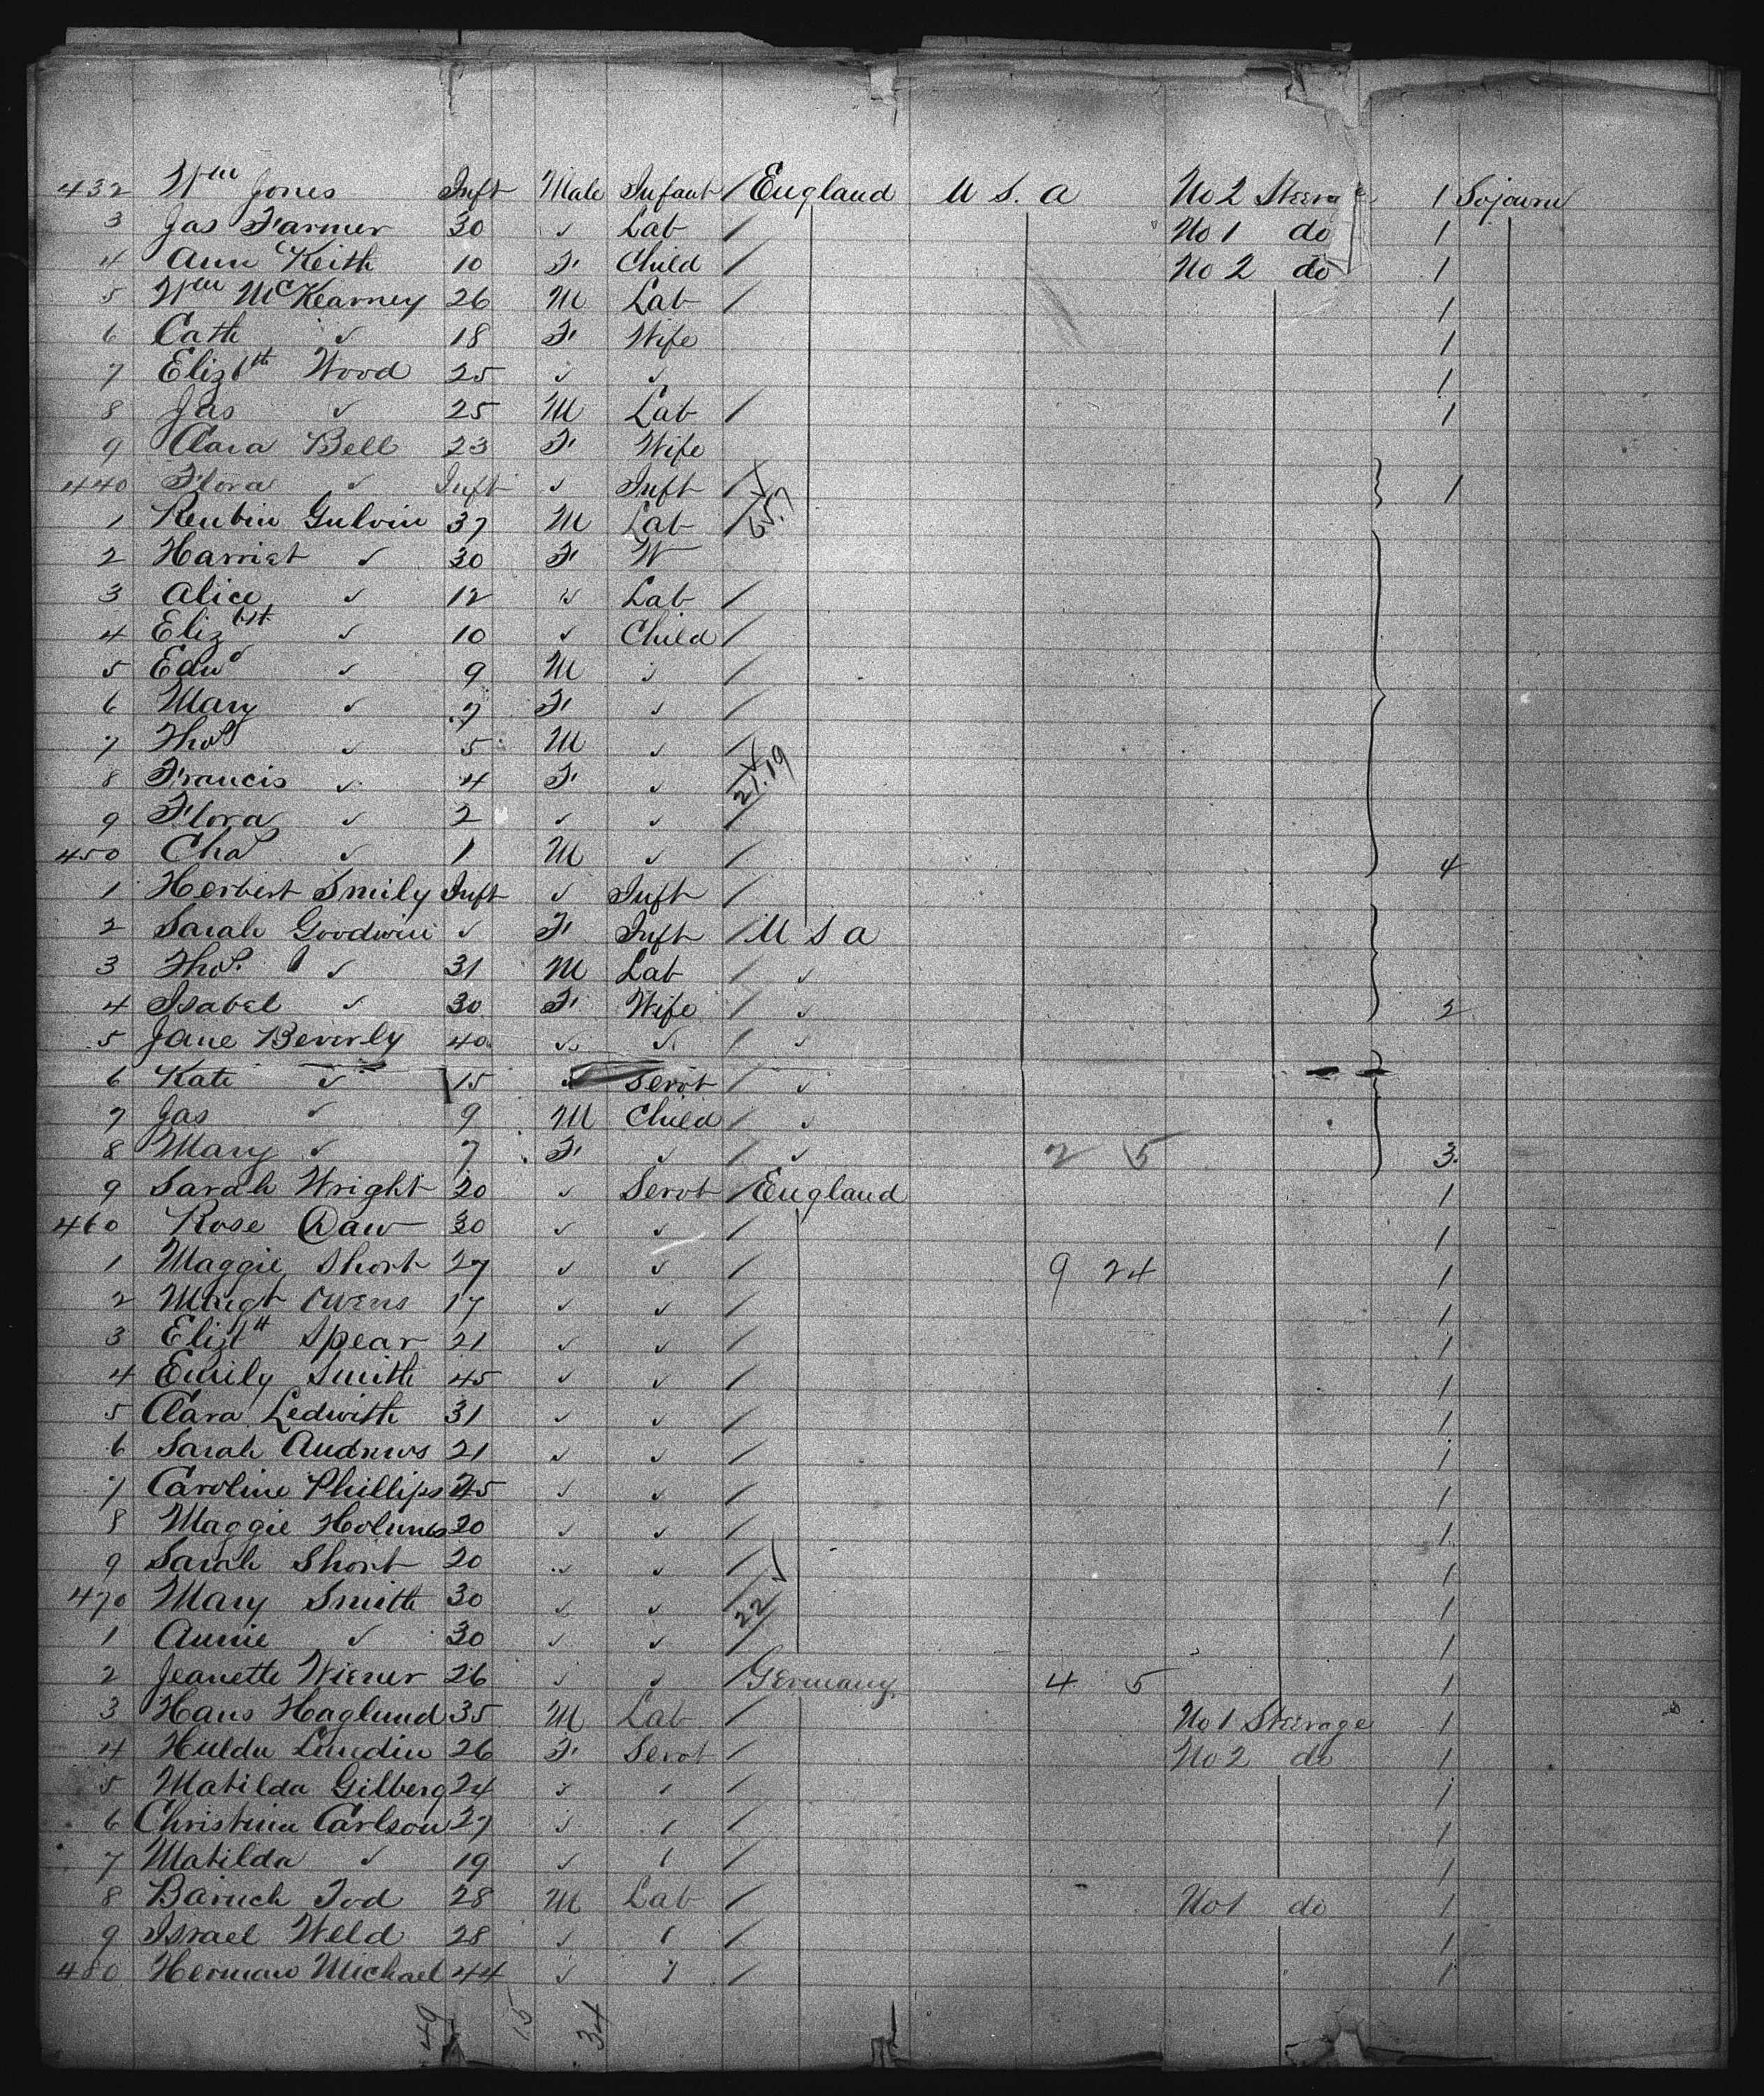 432 Wm Jones Inft Male Infant / England U S. A No 2 Steera 1 Sojourn
3 Jas Farmer 30 ✓ Lab / No 1 do 1
4 Ann Keith 10 F Child / No 2 do 1
5 Wm McKearney 26 M Lab / 1
6 Cath ✓ 18 F Wife 1
7 Elizbth Wood 25 ✓ ✓ 1
8 Jas ✓ 25 M Lab / 1
9 Clara Bell 23 F Wife
440 Flora ✓ Inft ✓ Inft / 1
1 Reubin Gulvin 37 M Lab /
2 Harriet ✓ 30 F W
3 Alice ✓ 12 ✓ Lab /
4 Elizbth ✓ 10 ✓ Child /
5 Edwd ✓ 9 M ✓ /
6 Mary ✓ 7 F ✓ /
7 Thos ✓ 5 M ✓ /
8 Francis ✓ 4 F ✓ / 21.19
9 Flora ✓ 2 ✓ ✓ /
450 Chas ✓ 1 M ✓ / 4
1 Herbert Smily Inft ✓ Inft /
2 Sarah Goodwin ✓ F Inft / U S A
3 Thos. ✓ 31 M Lab / ✓
4 Isabel ✓ 30 F Wife / ✓ 2
5 Jane Beverly 40 ✓ ✓ / ✓
6 Kate ✓ 15 ✓ Servt / ✓
7 Jas ✓ 9 M Child / ✓
8 Mary ✓ 7 F ✓ / ✓ 2 5 3
9 Sarah Wright 20 ✓ Servt / England 1
460 Rose Daw 30 ✓ ✓ / 1
1 Maggie Short 27 ✓ ✓ / 9 24 1
2 Margt Owens 17 ✓ ✓ / 1
3 Elizth Spear 21 ✓ ✓ / 1
4 Emily Smith 45 ✓ ✓ / 1
5 Clara Ledwith 31 ✓ ✓ / 1
6 Sarah Andrews 21 ✓ ✓ / 1
7 Caroline Phillips 45 ✓ ✓ / 1
8 Maggie Holmes 20 ✓ ✓ / 1
9 Sarah Short 20 ✓ ✓ / 1
470 Mary Smith 30 ✓ ✓ / 22 1
1 Annie ✓ 30 ✓ ✓ / 1
2 Jeanette Wiener 26 ✓ ✓ / Germany 4 5 1
3 Hans Haglund 35 M Lab / No 1 Steerage 1
4 Hulda Lundin 26 F Servt / No 2 do 1
5 Matilda Gilberg 24 ✓ ✓ / 1
6 Christina Carlson 27 ✓ ✓ / 1
7 Matilda ✓ 19 ✓ ✓ / 1
8 Baruch Tod 28 M Lab / No 1 do 1
9 Israel Weld 28 ✓ ✓ / 1
480 Herman Michael 44 ✓ ✓ / 1
49 15 34